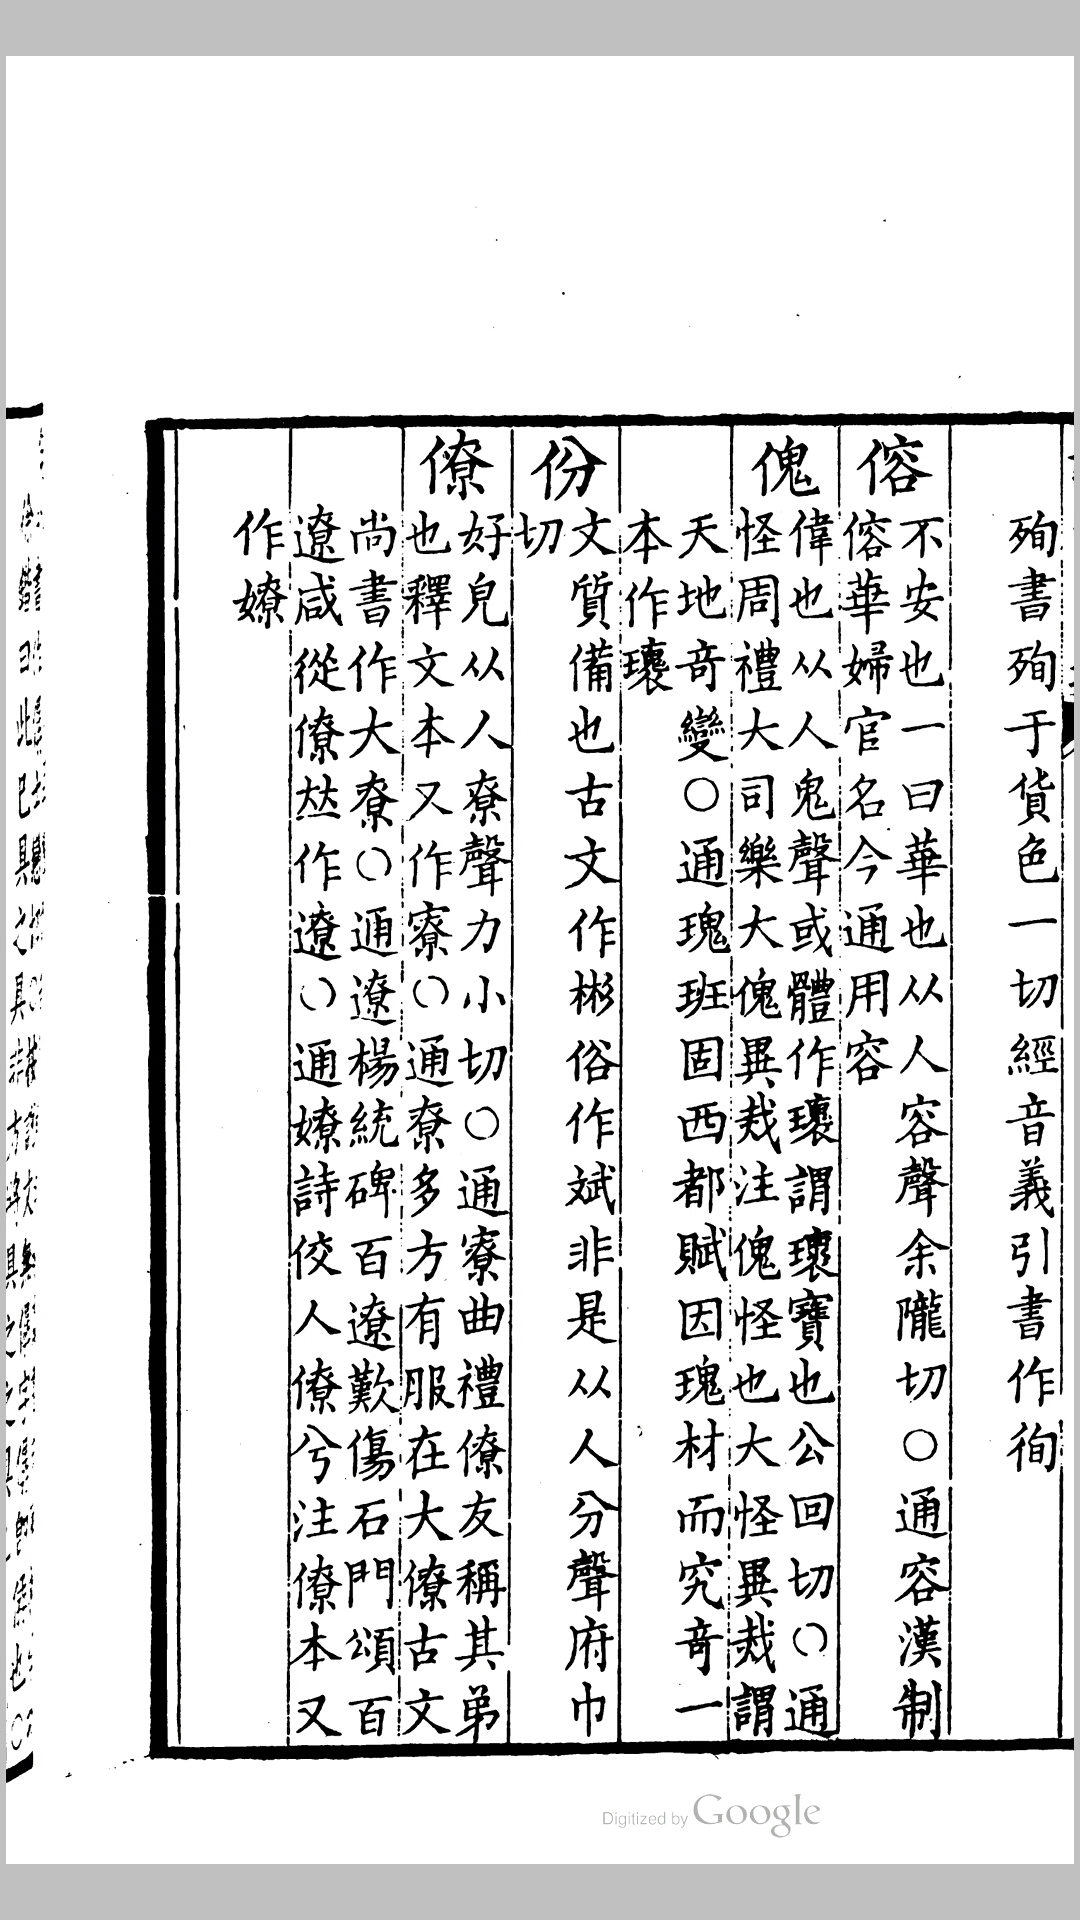 殉書殉于貨色一切經音義引書作徇
傛
不安也一曰華也从人容聲余隴切○通容漢制
傛華婦官名今通用容
傀
偉也从人鬼聲或體作瓌謂瓌寶也公回切○通
怪周禮大司樂大傀異烖注傀怪也大怪異烖謂
天地竒變○通瑰班固西都賦因瑰材而究竒一
本作瓌
份
文質備也古文作彬俗作斌非是从人分聲府巾
切
僚
好皃从人尞聲力小切○通寮曲禮僚友稱其弟
也釋文本又作寮○通尞多方有服在大僚古文
尚書作大尞○通遼楊統碑百遼歎傷石門頌百
遼咸從僚竝作遼○通嫽詩佼人僚兮注僚本又
作嫽
Digitized by Google